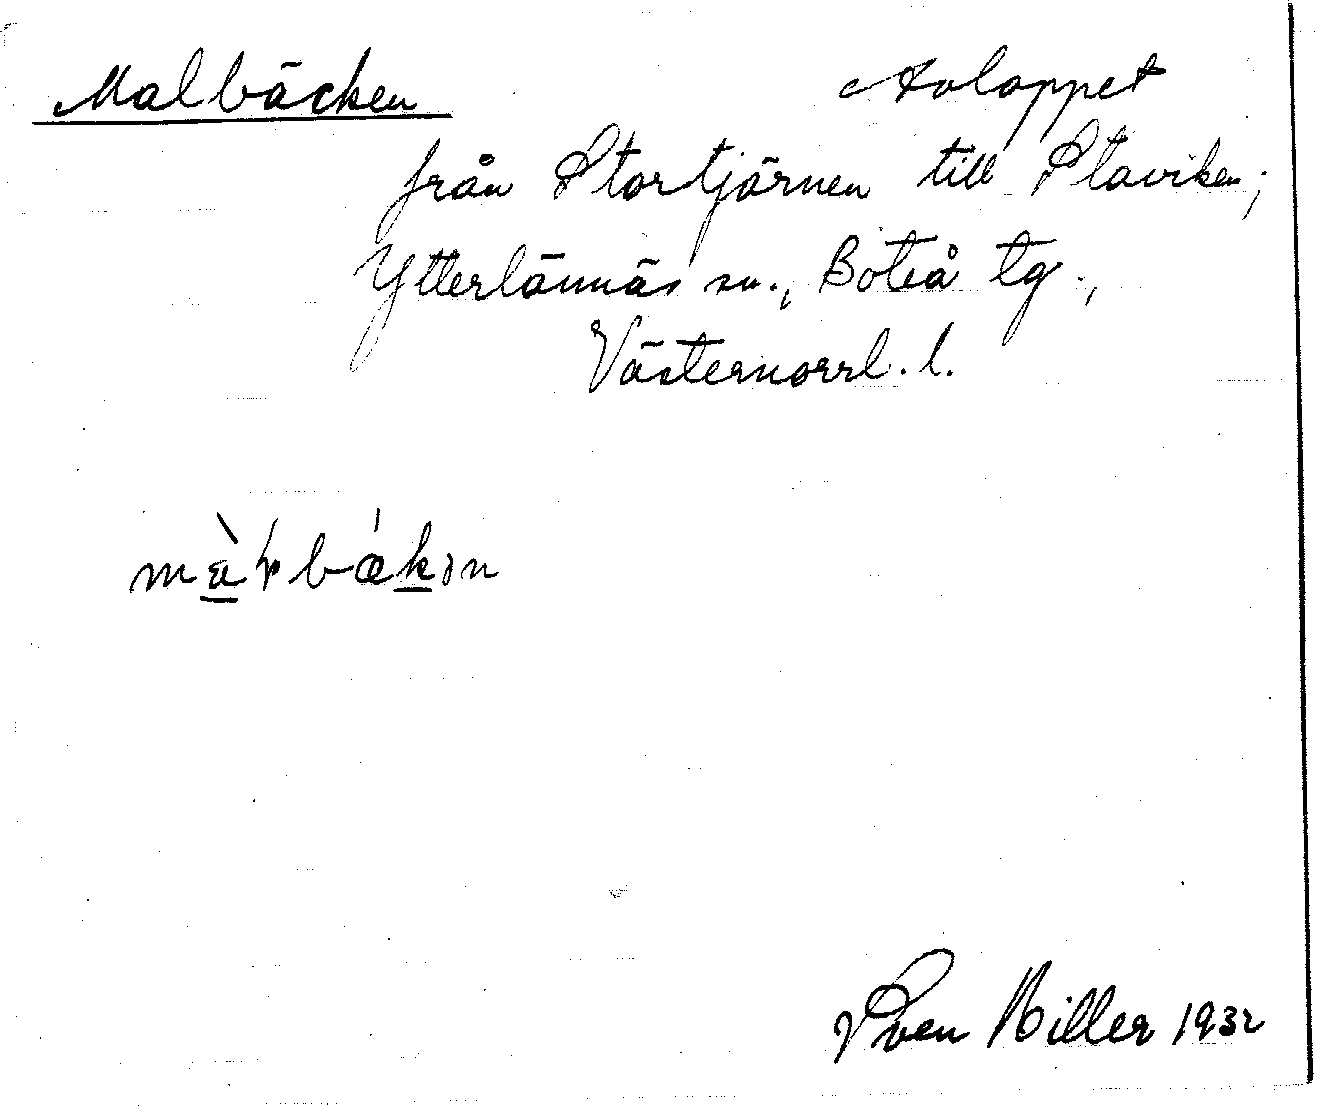 Malbäcken Avloppet
från Stortjärnen till Staviken;
Ytterlännäs sn., Boteå tg.,
Västernorrl. l.
Sven Hiller 1932